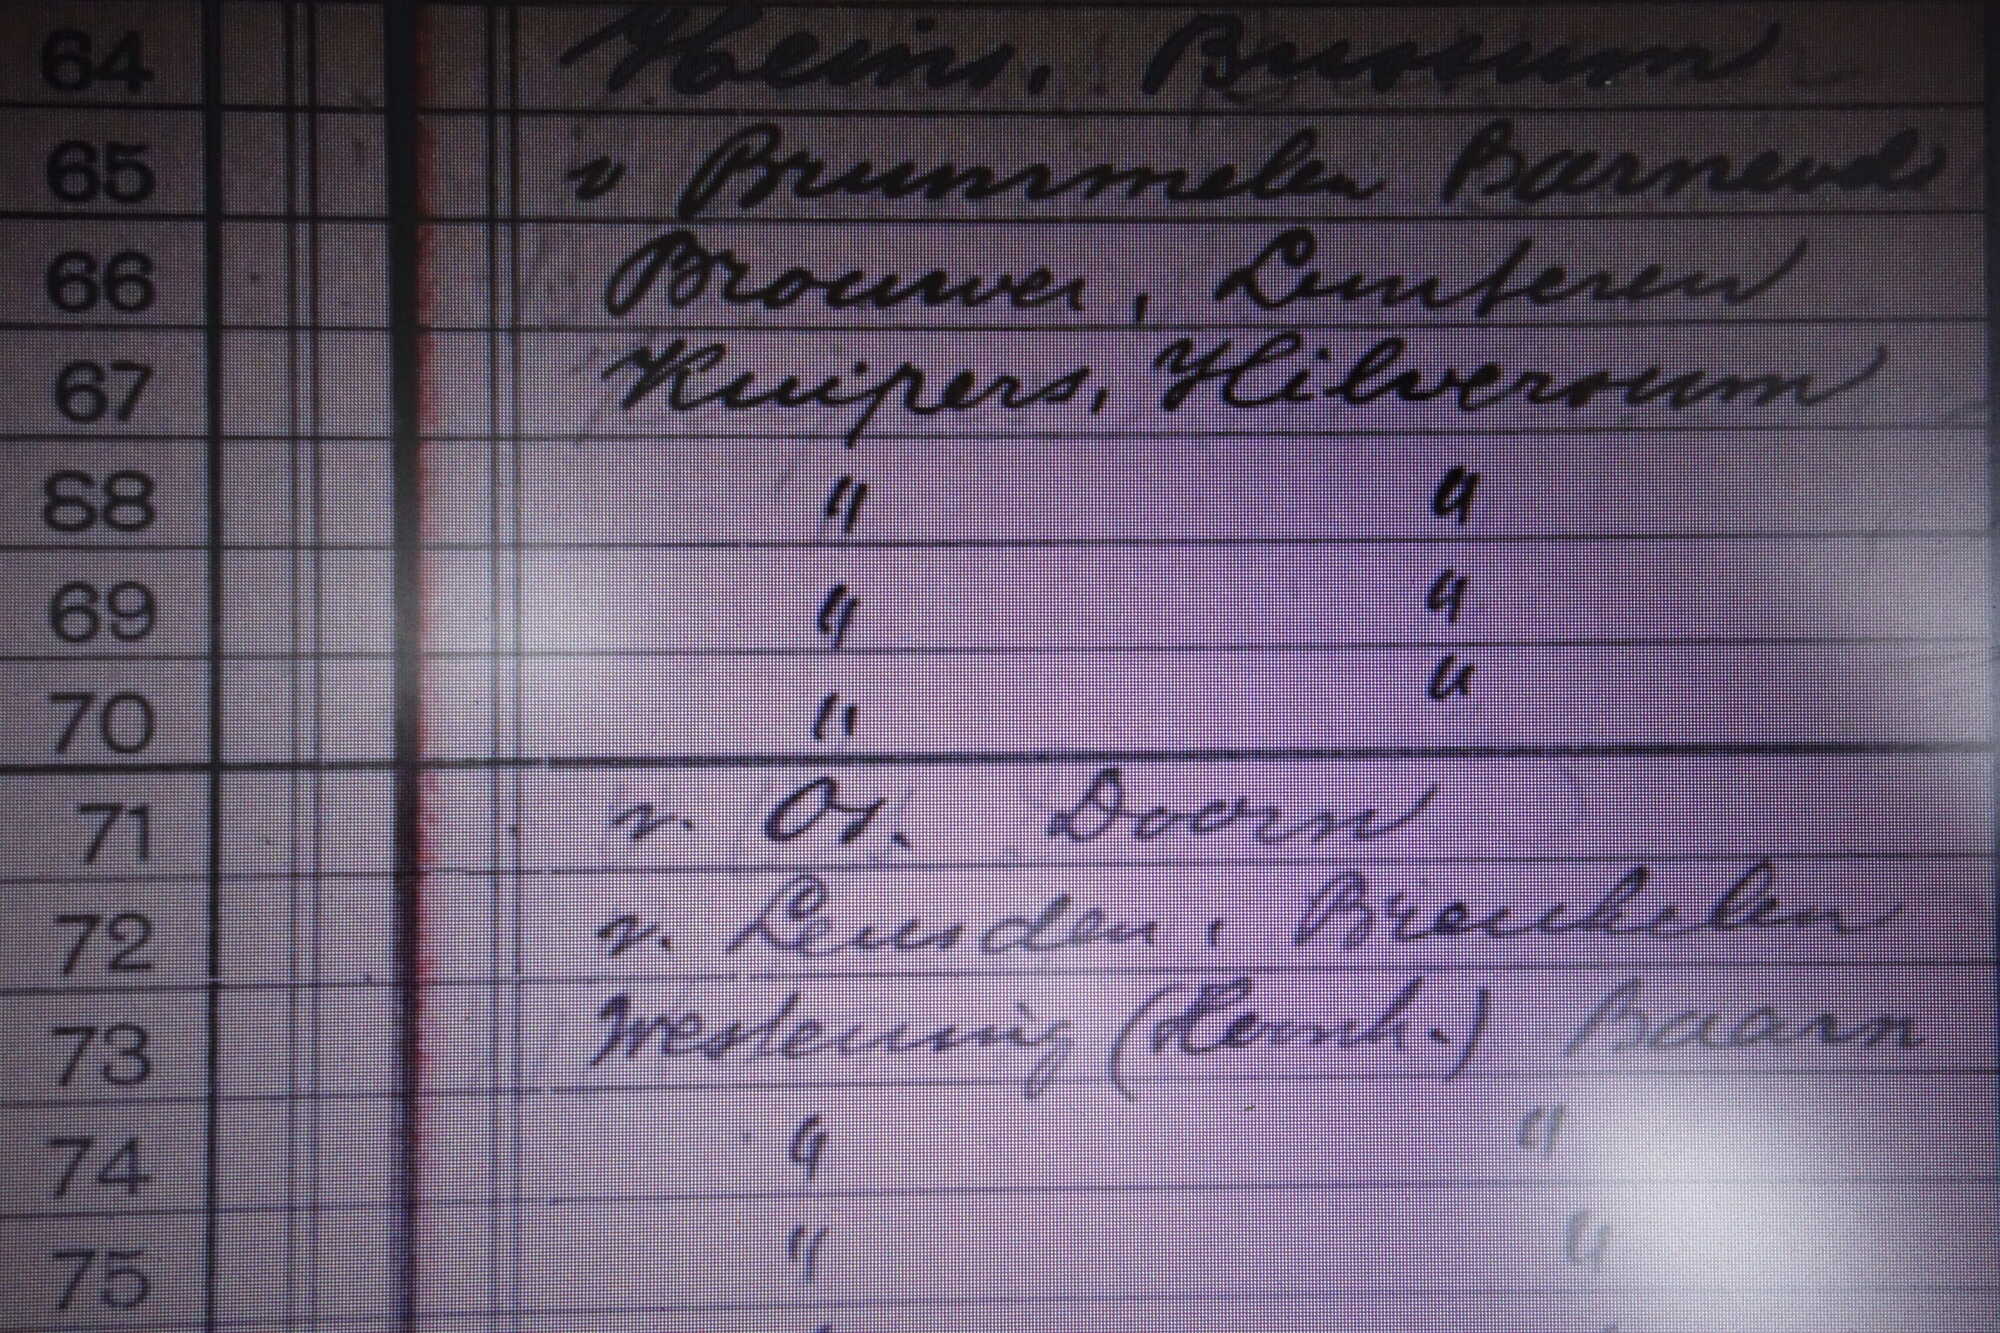 64 Heins. Bussum
65 v Brummelen Barneveld
66 Brouwer, Lunteren
67 Kuipers, Hilversum
68 " "
69 " "
70 " "
71 v. Os. Doorn
72 v. Leusden, Breukelen
73 Westening (Henk.) Baarn
74 " "
75 " "